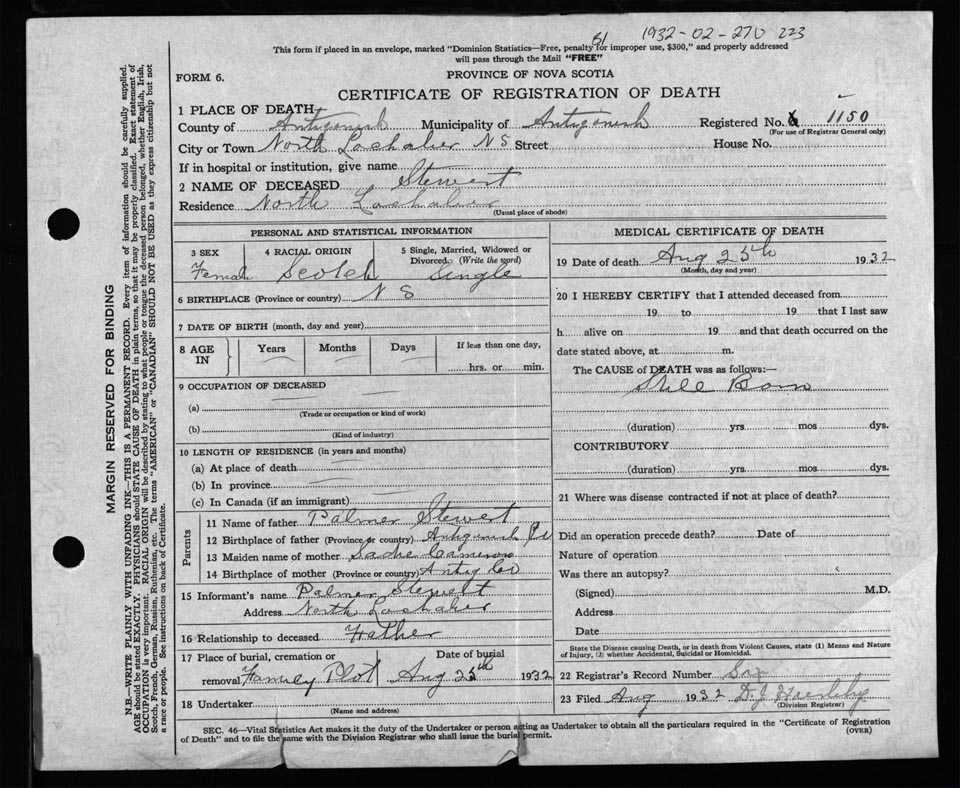 1932-02-270 223
B1
This form if placed in an envelope, marked "Dominion Statistics—Free, penalty for improper use, $300," and properly addressed
will pass through the Mail "FREE"
FORM 6.
PROVINCE OF NOVA SCOTIA
CERTIFICATE OF REGISTRATION OF DEATH
1 PLACE OF DEATH
County of Antigonish Municipality of Antigonish Registered No. 1150
(For use of Registrar General only)
City or Town North Lochaber N S Street House No.
If in hospital or institution, give name
2 NAME OF DECEASED Stewert
Residence North Lochaber
(Usual place of abode)
PERSONAL AND STATISTICAL INFORMATION
3 SEX 4 RACIAL ORIGIN 5 Single, Married, Widowed or
Divorced. (Write the word)
Female Scotch Single
6 BIRTHPLACE (Province or country) N S
7 DATE OF BIRTH (month, day and year)
8 AGE IN Years Months Days If less than one day,
hrs. or min.
9 OCCUPATION OF DECEASED
(a)
(Trade or occupation or kind of work)
(b)
(Kind of industry)
10 LENGTH OF RESIDENCE (in years and months)
(a) At place of death
(b) In province
(c) In Canada (if an immigrant)
Parents
11 Name of father Palmer Stewert
12 Birthplace of father (Province or country) Antigonish Co
13 Maiden name of mother Sadie Cameron
14 Birthplace of mother (Province or country) Antig Co
15 Informant's name Palmer Stewert
Address North Lochaber
16 Relationship to deceased Father
17 Place of burial, cremation or Date of burial
removal Family Plot Aug 25th 1932
18 Undertaker
(Name and address)
MEDICAL CERTIFICATE OF DEATH
19 Date of death Aug 25th 1932
(Month, day and year)
20 I HEREBY CERTIFY that I attended deceased from
19 to 19 that I last saw
h alive on 19 and that death occurred on the
date stated above, at m.
The CAUSE of DEATH was as follows:—
Still Born
(duration) yrs. mos dys.
CONTRIBUTORY
(duration) yrs. mos dys.
21 Where was disease contracted if not at place of death?
Did an operation precede death? Date of
Nature of operation
Was there an autopsy?
(Signed) M.D.
Address
Date
State the Disease causing Death, or in death from Violent Causes, state (1) Means and Nature
of Injury, (2) whether Accidental, Suicidal or Homicidal.
22 Registrar's Record Number Six
23 Filed Aug 1932 D. J.
(Division Registrar)
SEC. 46—Vital Statistics Act makes it the duty of the Undertaker or person acting as Undertaker to obtain all the particulars required in the "Certificate of Registration
of Death" and to file the same with the Division Registrar who shall issue the burial permit.
(OVER)
MARGIN RESERVED FOR BINDING
N.B.—WRITE PLAINLY WITH UNFADING INK—THIS IS A PERMANENT RECORD. Every item of information should be carefully supplied.
AGE should be stated EXACTLY. PHYSICIANS should STATE CAUSE OF DEATH in plain terms, so that it may be properly classified. Exact statement of
OCCUPATION is very important. RACIAL ORIGIN will be described by stating to what people or tongue the deceased person belonged, whether English, Irish,
Scotch, French, German, Russian, Ruthenian, etc. The terms "AMERICAN" or "CANADIAN" SHOULD NOT BE USED as they express citizenship but not
a race or people. See instructions on back of Certificate.